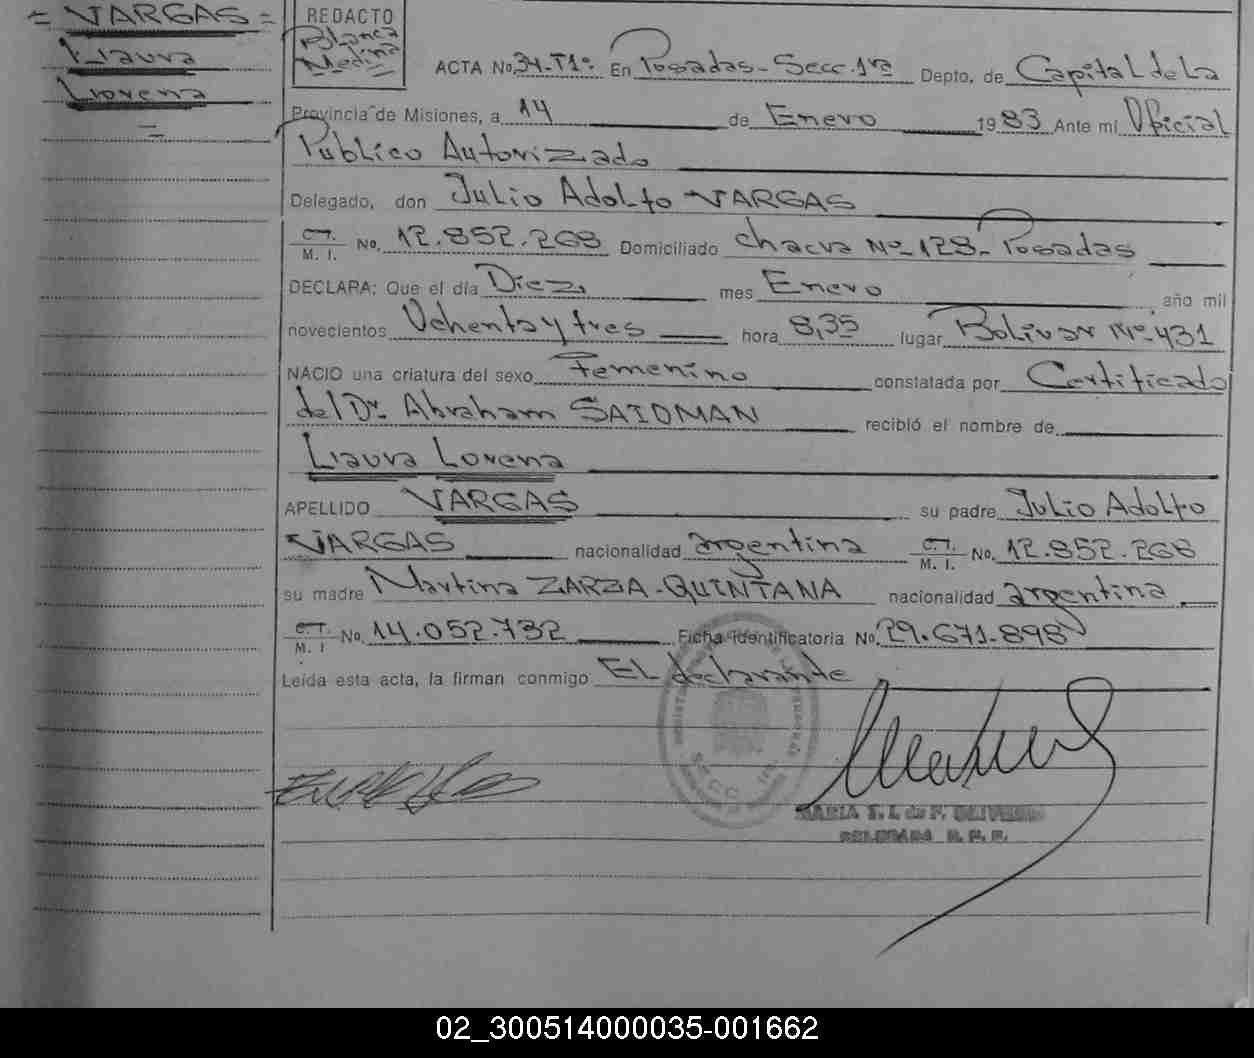 = VARGAS =
Laura
Lorena
=
REDACTO
Blanca
Medina
ACTA No. 34-T1º En Posadas-Secc.1ra Depto, de Capital de La
Provincia de Misiones, a 14 de Enero 1983 Ante mi Oficial
Publico Autorizado
Delegado, don Julio Adolfo VARGAS
C.I.
M. I. No. 12.852.268 Domiciliado chacra Nº-128-Posadas
DECLARA: Que el día Diez mes Enero año mil
novecientos Ochenta y tres hora 8,35 lugar Bolivar Nº-431
NACIO una criatura del sexo Femenino constatada por Certificado
del Dr. Abraham recibió el nombre de
Laura Lorena
APELLIDO VARGAS su padre Julio Adolfo
VARGAS nacionalidad argentina C.I.
M. I. No. 12.852.268
su madre Martina ZARZA-QUINTANA nacionalidad argentina
C.I.
M. I No. 14.052.732 Ficha identificatoria No. 29.671.898
Leída esta acta, la firman conmigo EL declarante
SECC 1ra
MARIA
DELEGADA
02_300514000035-001662